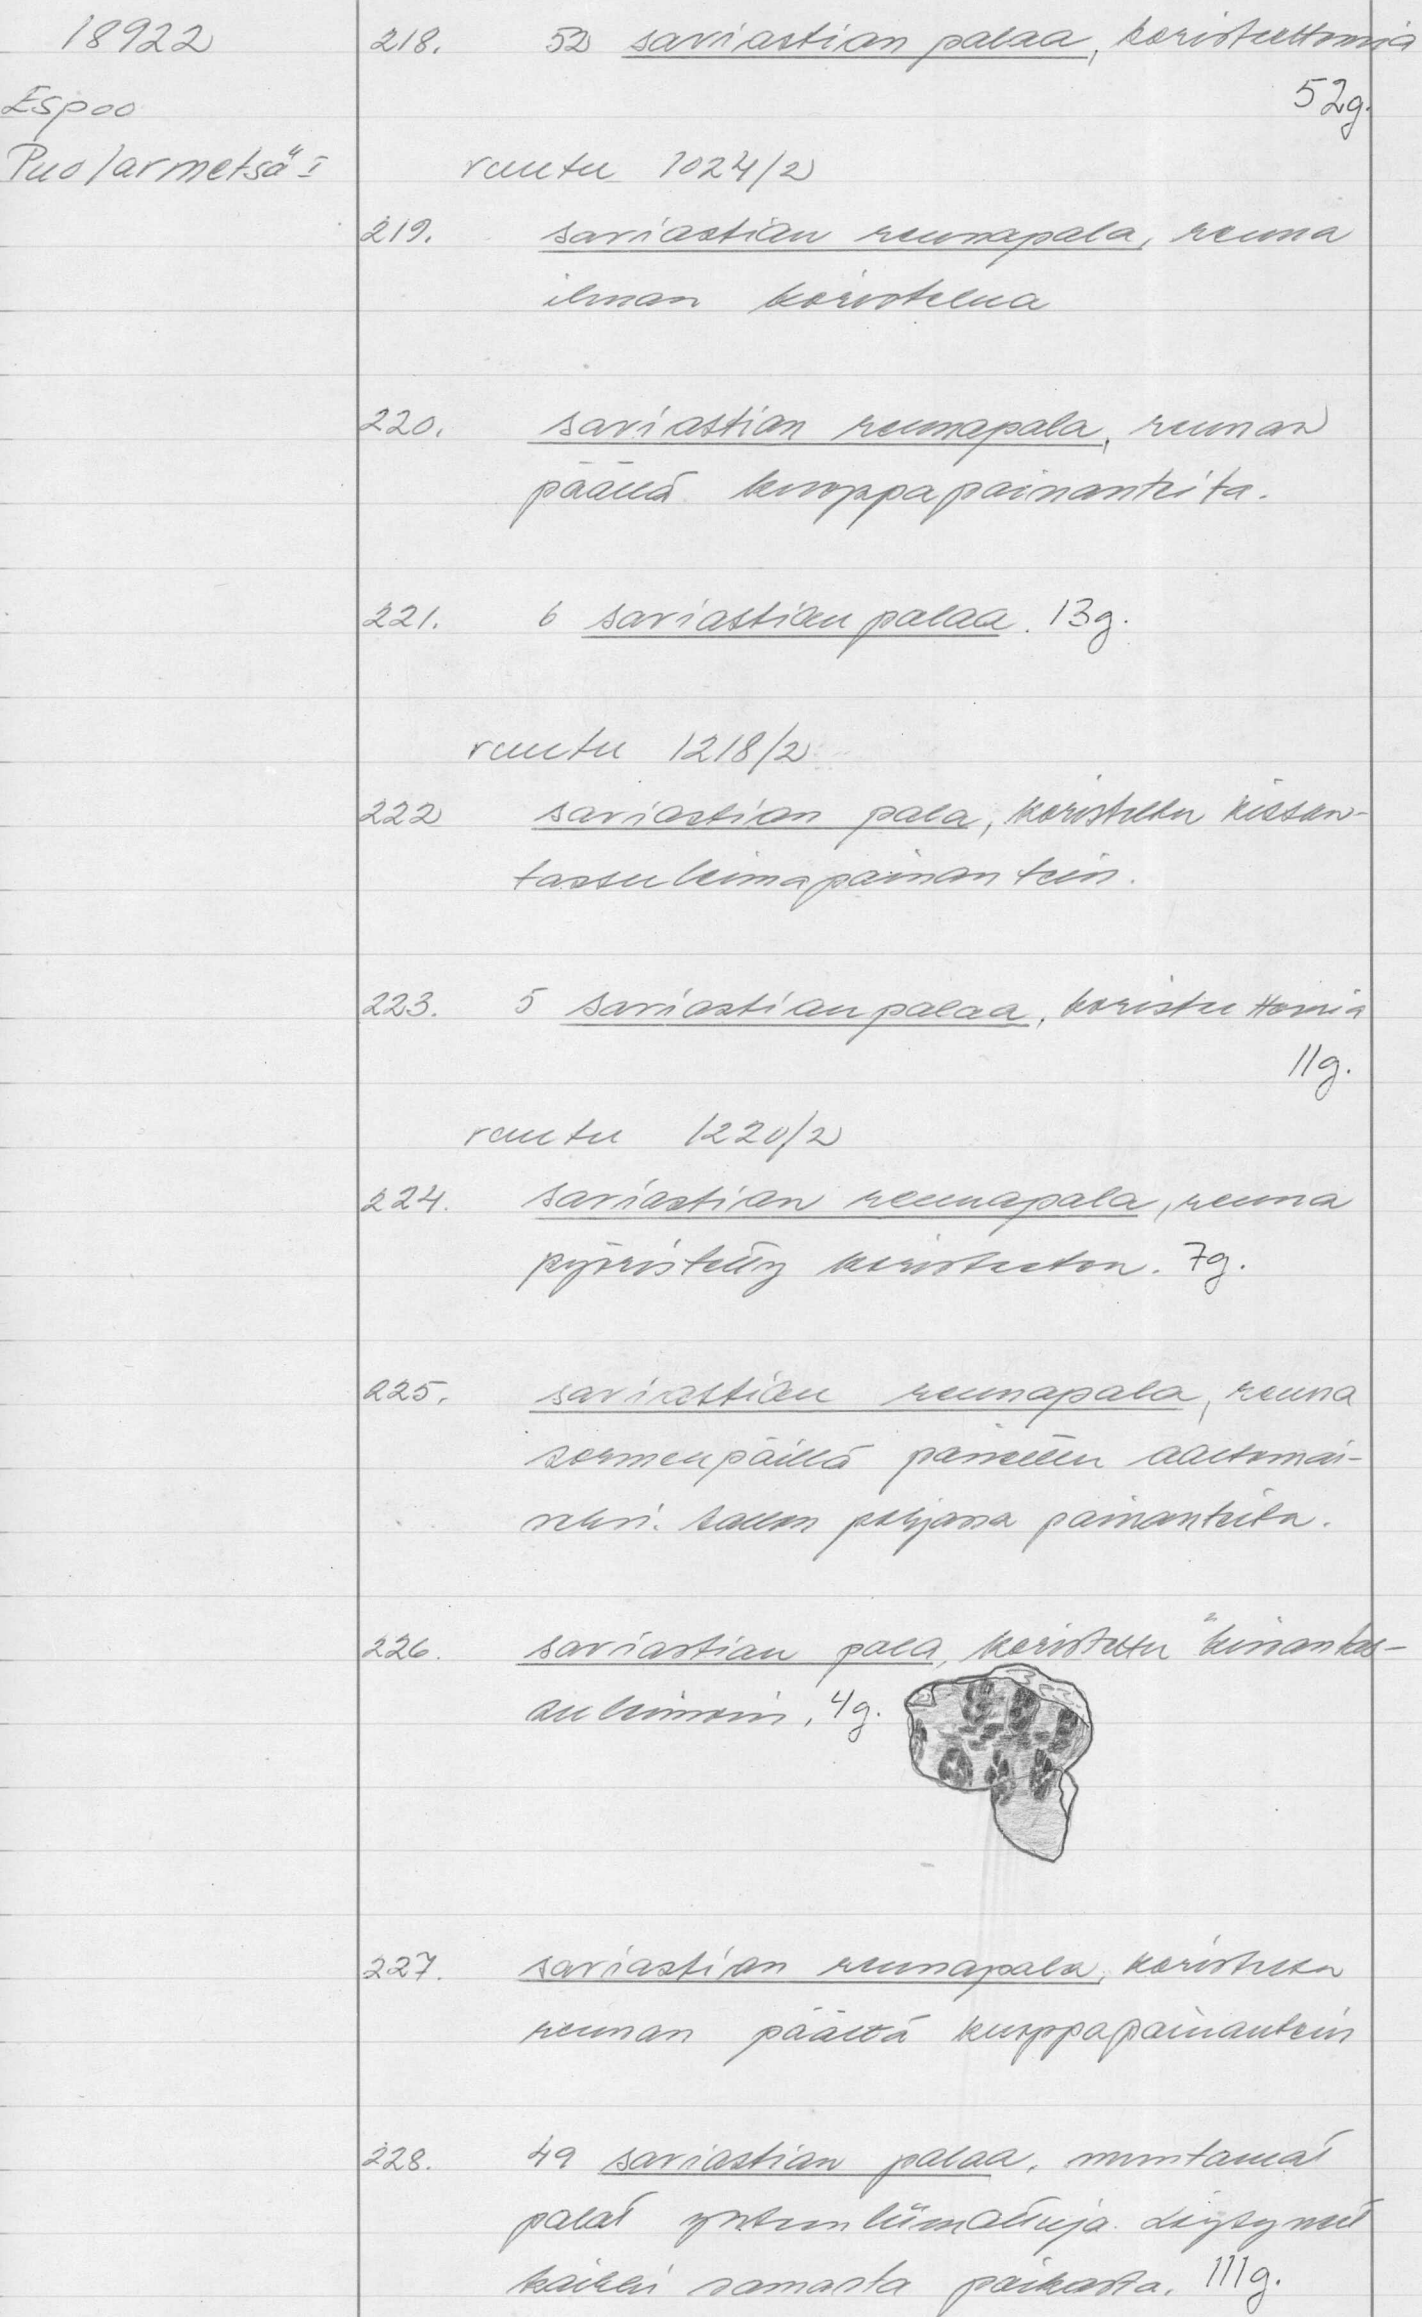 18922
Espoo
Puolarmetsä I
218. 52 saviastian palaa, koristeettomia
52g.
ruutu 1024/2
219. saviastian reunapala, reuna
ilman koristelua
220. saviastian reunapala, reunan
päällä kuoppapainanteita.
221. 6 saviastian palaa. 13g.
ruutu 1218/2
222 saviastian pala, koristeltu kissan-
tassuleimapainantein.
223. 5 saviastian palaa, koristeettomia
11g.
ruutu 1220/2
224. saviastian reunapala, reuna
pyöristetty koristeeton. 7g.
225. saviastian reunapala, reuna
sormenpäillä painettu aaltomai-
seksi. pohjassa painanteita.
226. saviastian pala, koristettu "kissantas-
suleimoin, 4g.
227. saviastian reunapala, koristettu
reunan päältä kuoppapainantein
228. 49 saviastian palaa, muutamat
palat yhteenliimattuja. Löytyneet
kaikki samasta paikasta. 111g.